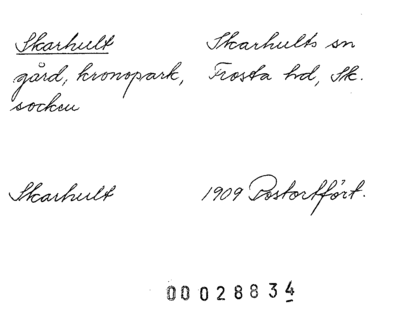 Skarhult Skarhults sn
gård, kronopark, Frosta hd, Sk.
socken
Skarhult 1909 Postortfört.
00028834